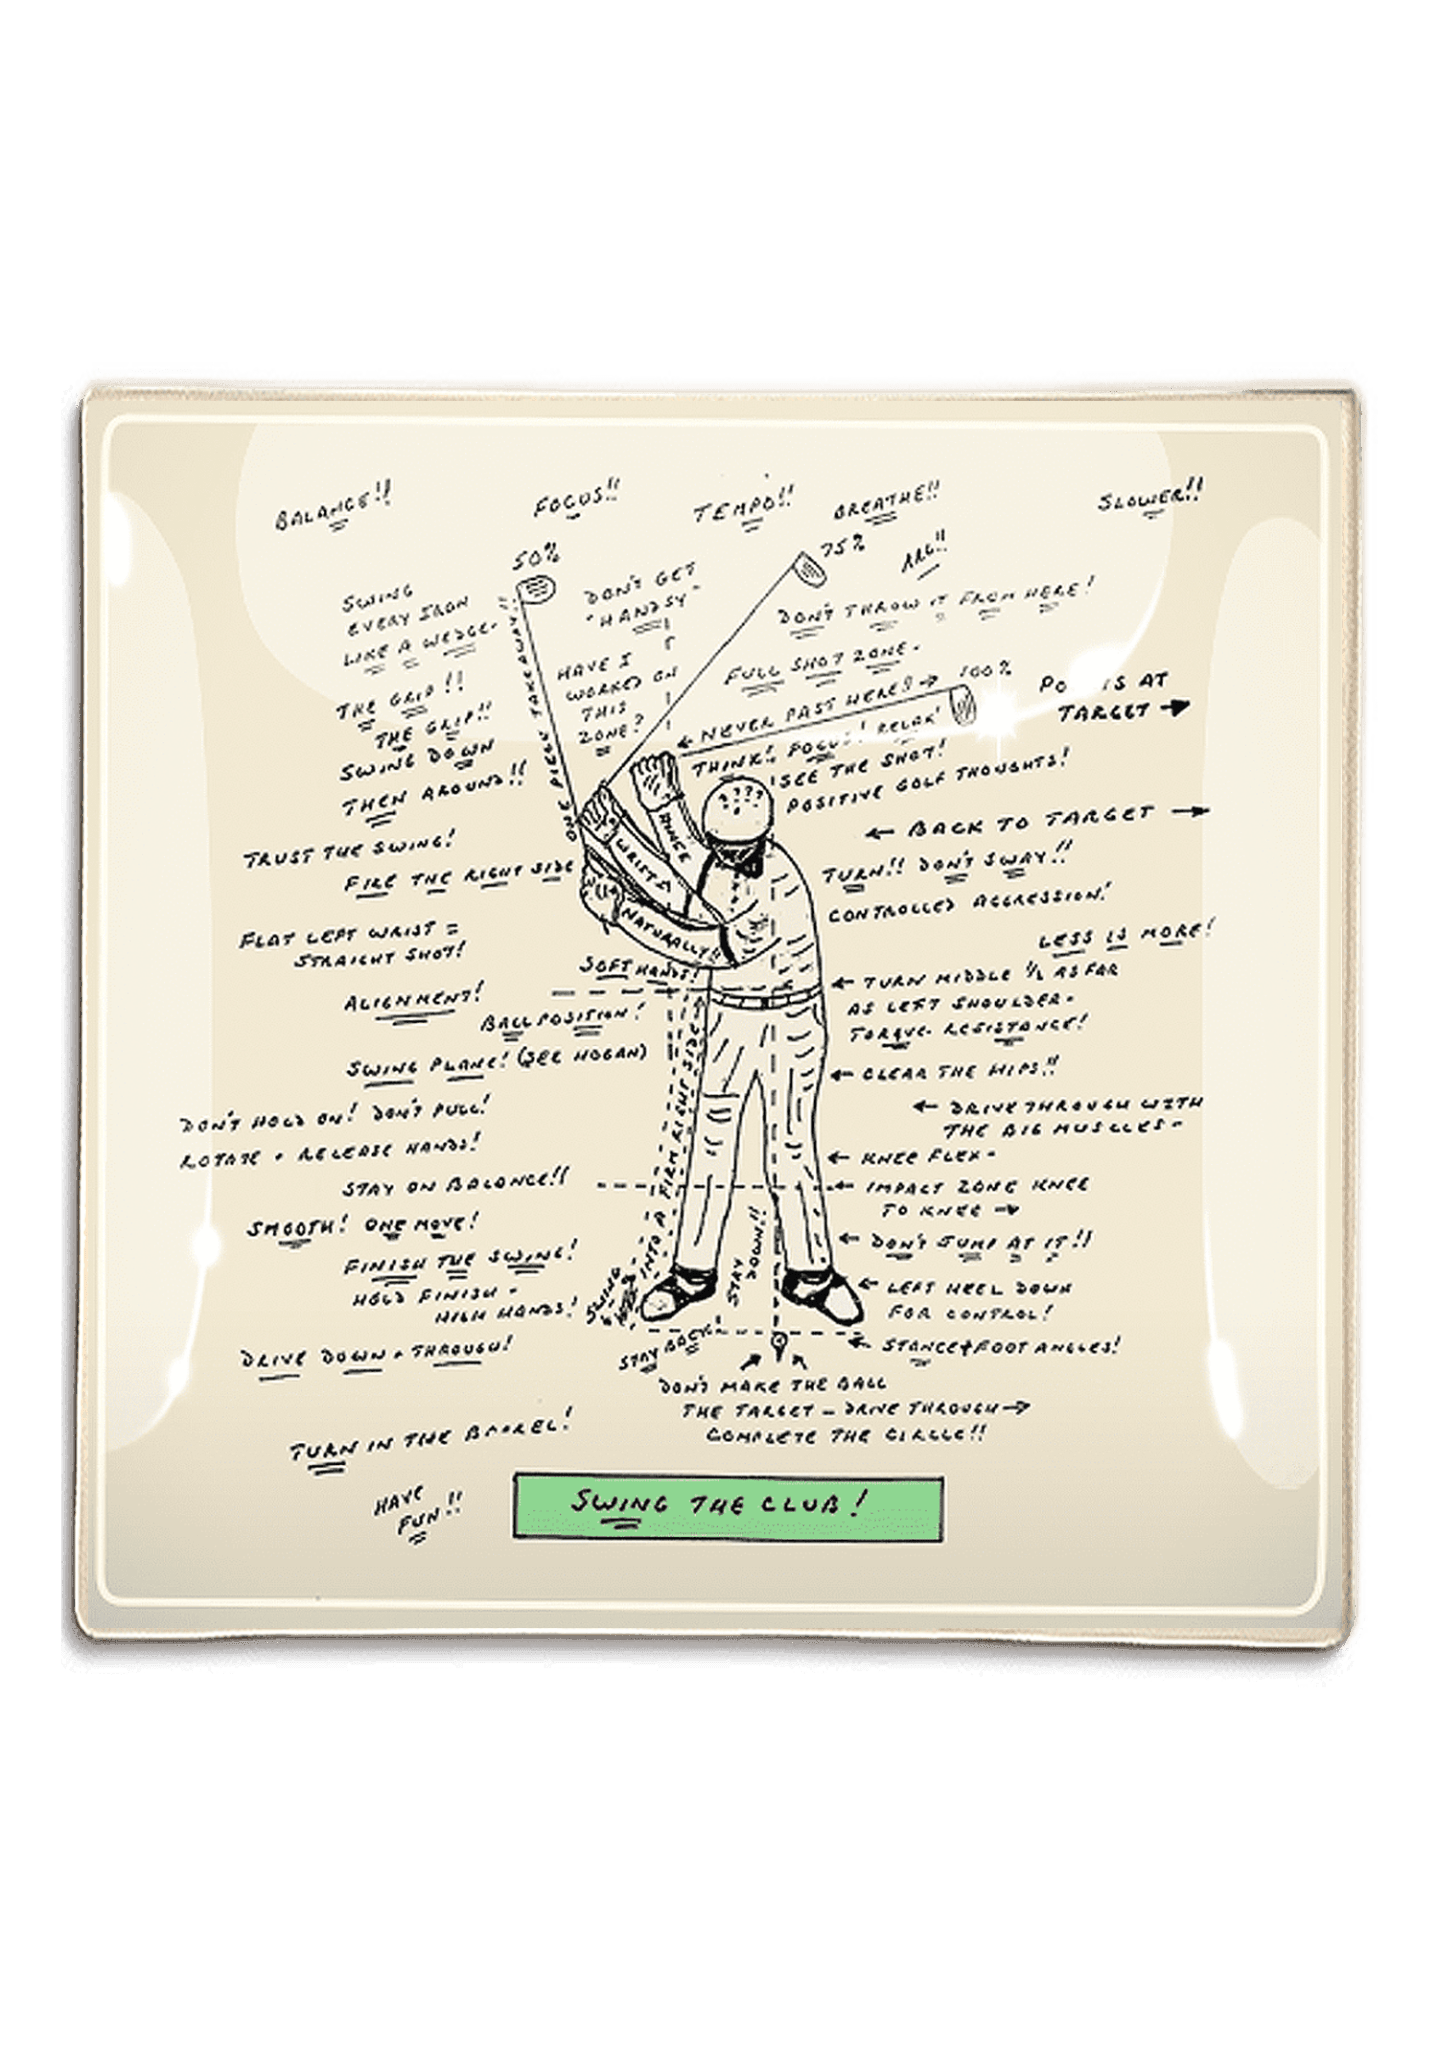 BALANCE!!
FOCUS!!
TEMPO!!
BREATHE!!
SLOWER!!
50%
75%
ARG!!
SWING
EVERY IRON
LIKE A WEDGE-
DON'T GET
"HANDSY"
DON'T THROW IT FROM HERE!
ONE PIECE TAKEAWAY!!
HAVE I
WORKED ON
THIS
ZONE?
FULL SHOT ZONE-
100%
← NEVER PAST HERE!! →
IS AT
TARGET →
THE GRIP!!
THE GRIP!!
SWING DOWN
THEN AROUND!!
THINK! FOCUS! RELAX!
SEE THE SHOT!
POSITIVE GOLF THOUGHTS!
????
HINGE
WRISTS
NATURALLY!!
← BACK TO TARGET →
TRUST THE SWING!
FIRE THE RIGHT SIDE
TURN!! DON'T SWAY!!
CONTROLLED AGGRESSION!
FLAT LEFT WRIST =
STRAIGHT SHOT!
LESS IS MORE!
SOFT HANDS!
← TURN MIDDLE ½ AS FAR
AS LEFT SHOULDER-
TORQUE- RESISTANCE!
ALIGNMENT!
BALL POSITION!
SWING PLANE! (SEE HOGAN)
← CLEAR THE HIPS!!
DON'T HOLD ON! DON'T PULL!
ROTATE + RELEASE HANDS!
← DRIVE THROUGH WITH
THE BIG MUSCLES-
STAY ON BALANCE!!
← KNEE FLEX-
← IMPACT ZONE KNEE
TO KNEE →
SMOOTH! ONE MOVE!
← DON'T JUMP AT IT!!
FINISH THE SWING!
HOLD FINISH -
HIGH HANDS!
SWING
INTO A FIRM RIGHT SIDE
STAY
DOWN!!
← LEFT HEEL DOWN
FOR CONTROL!
STAY BACK!
← STANCE + FOOT ANGLES!
DRIVE DOWN + THROUGH!
DON'T MAKE THE BALL
THE TARGET - DRIVE THROUGH →
COMPLETE THE CIRCLE!!
TURN IN THE BARREL!
HAVE
FUN!!
SWING THE CLUB!